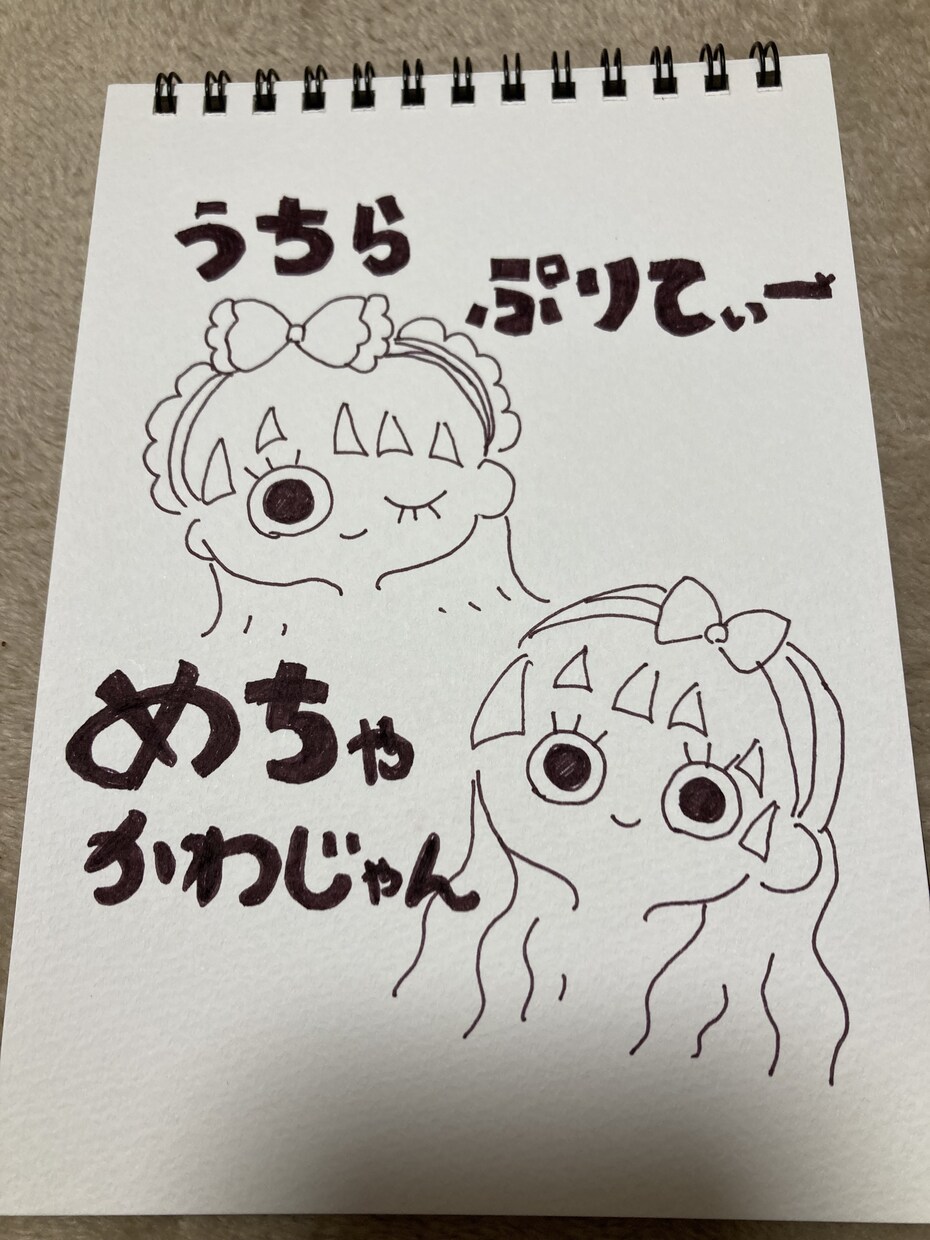 うちら
ぷりてぃー
めちゃ
かわじゃん